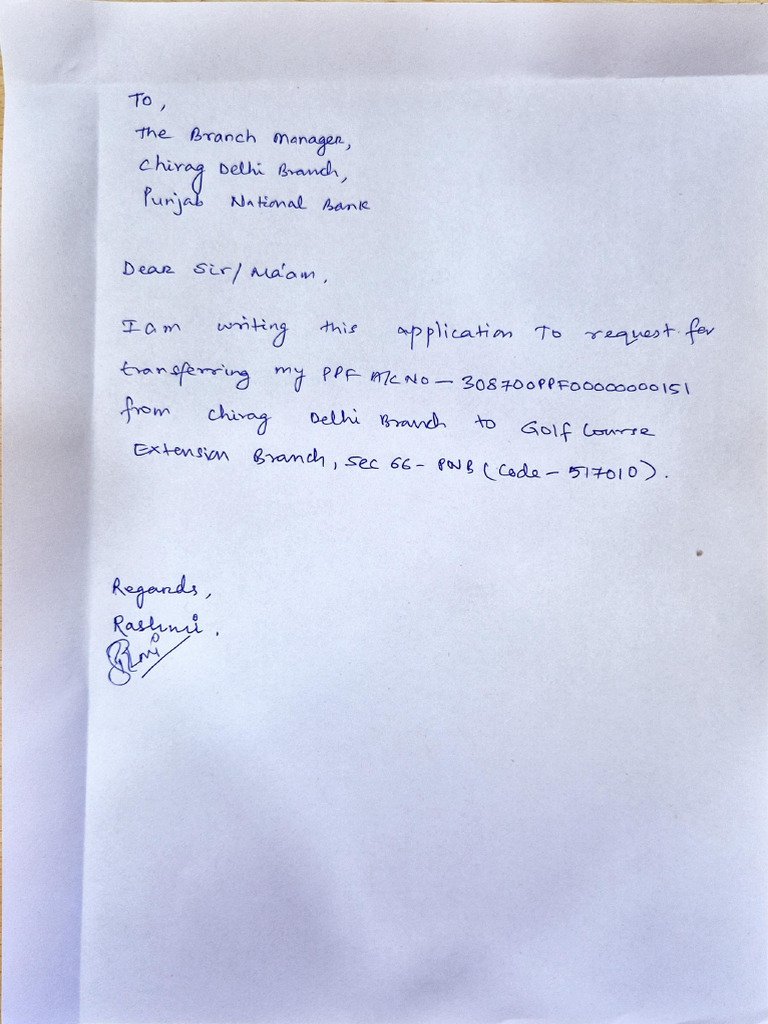 To,
The Branch Manager,
Chirag Delhi Branch,
Punjab National Bank
Dear Sir/ Ma'am,
I am writing this application To request for
transferring my PPF A/C NO - 308700PPF00000000151
from Chirag Delhi Branch to Golf Course
Extension Branch, Sec 66 - PNB (Code - 517010).
Regards,
Rashmi.